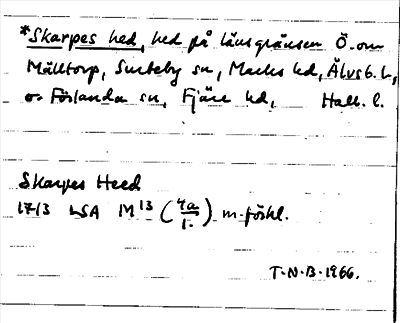 *Skarpes hed, hed på länsgränsen Ö. om
Mälltorp, Surteby sn, Marks hd, Älvsb. l.,
o. Förlanda sn, Fjäre hd, Hall. l.
Skarpes Heed
1713 LSA M 13 (4a/1.) m. förkl.
T.N.B. 1966.